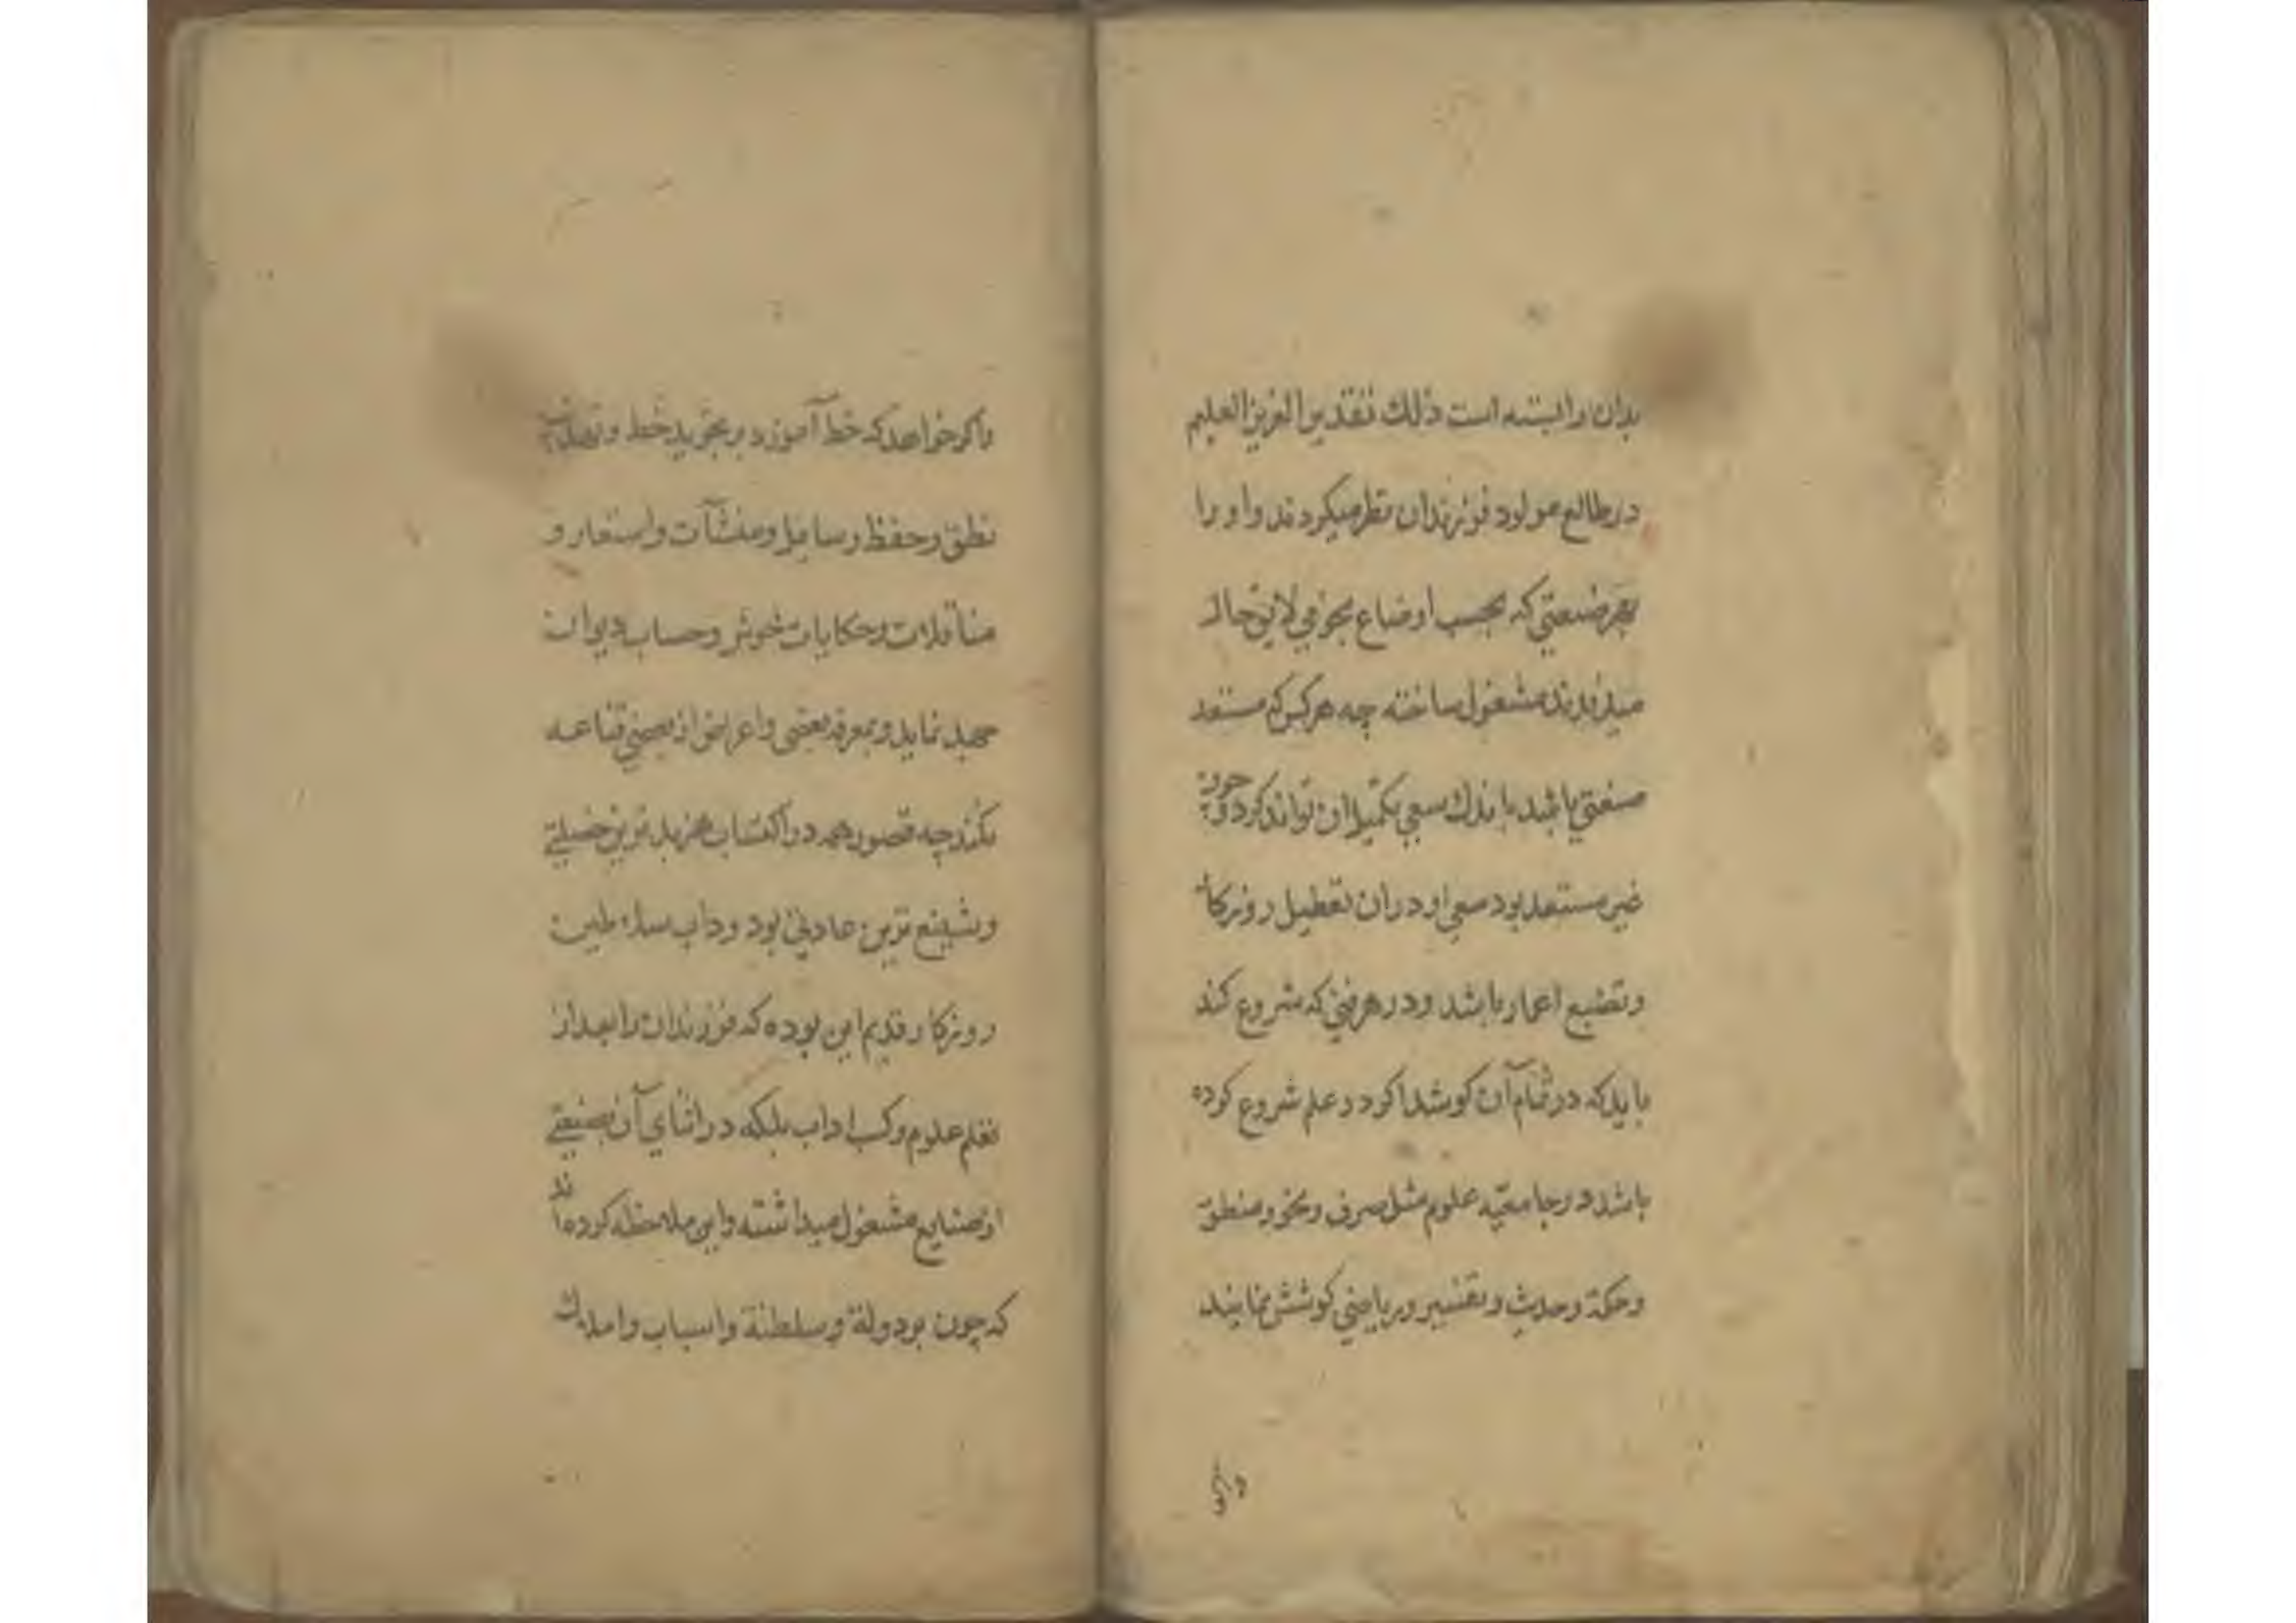 بدان وابسته است ذلك تقدیر العزیز العلیم
در طالع مولود فرزندان نظر میکردند و او را
بهر صنعتی که بحسب اوضاع نجومی لایق حال
میدیدند مشغول ساخته چه هر کس که مستعد
صنعتی باشد باندك سعی تکمیل ان تواند کرد و چون
غیر مستعد بود سعی او در ان تعطیل روزکار
و تضییع اعمار باشد و در هر فنی که شروع کند
باید که در تمام آن کوشد اکر در علم شروع کرده
باشد در جامعیه علوم مثل صرف و نحو و منطق
و حکمة و حدیث و تفسیر و ریاضی کوشش نمایند
واکر
واکر خواهد که خط آموزد بر تجوید خط و تهذیب
نطق و حفظ رسایل و منشآت و اشعار و
مناقلات و حکایات خوش و حساب دیوان
جهد نماید و بمعرفة بعضی و اعراض از بعضی قناعه
نکند چه قصور همه در اکتساب هنر بدترین خصلتی
و شنیع ترین عادتی بود و داب سلاطین
روزکار قدیم این بوده که فرزندان را بعد از
تعلم علوم و کسب اداب بلکه در اثنای آن بصنعتی
از صنایع مشغول میداشته و این ملاحظه کرده اند
که چون بر دولة و سلطنة و اسباب و املاك